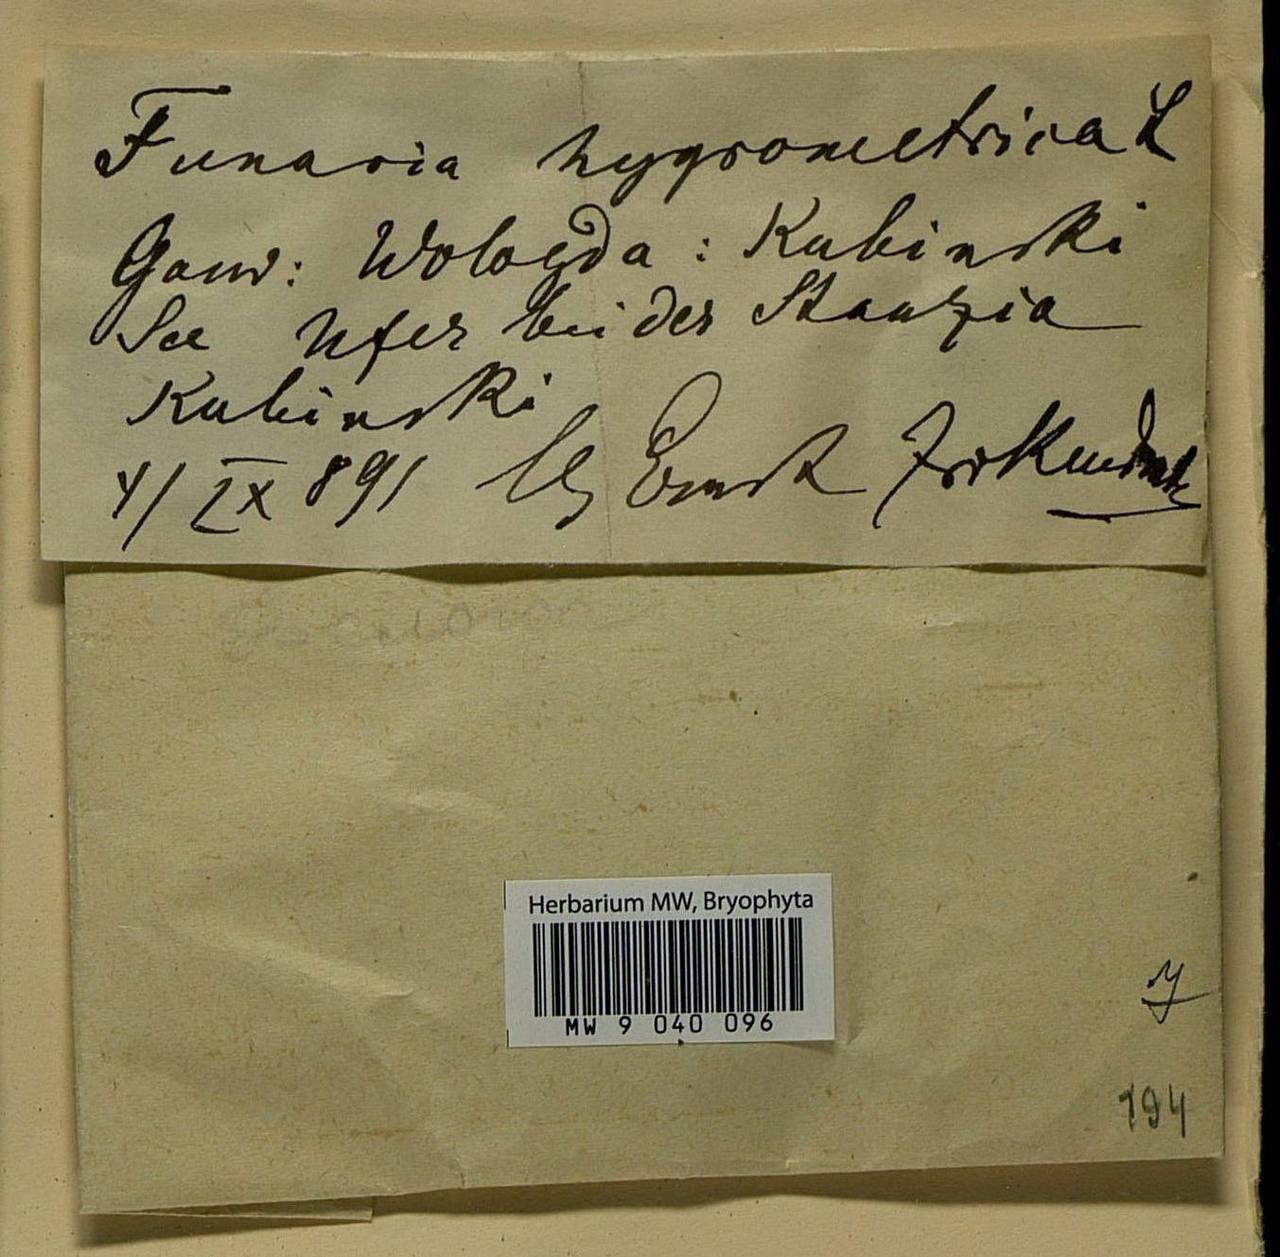 Funaria hygrometrica L
Gouv: Wologda : Kubinski
See Ufer bei der Stanzia
Kubinski
4/IX 891 lg Ernst
Herbarium MW, Bryophyta
MW 9 040 096
194